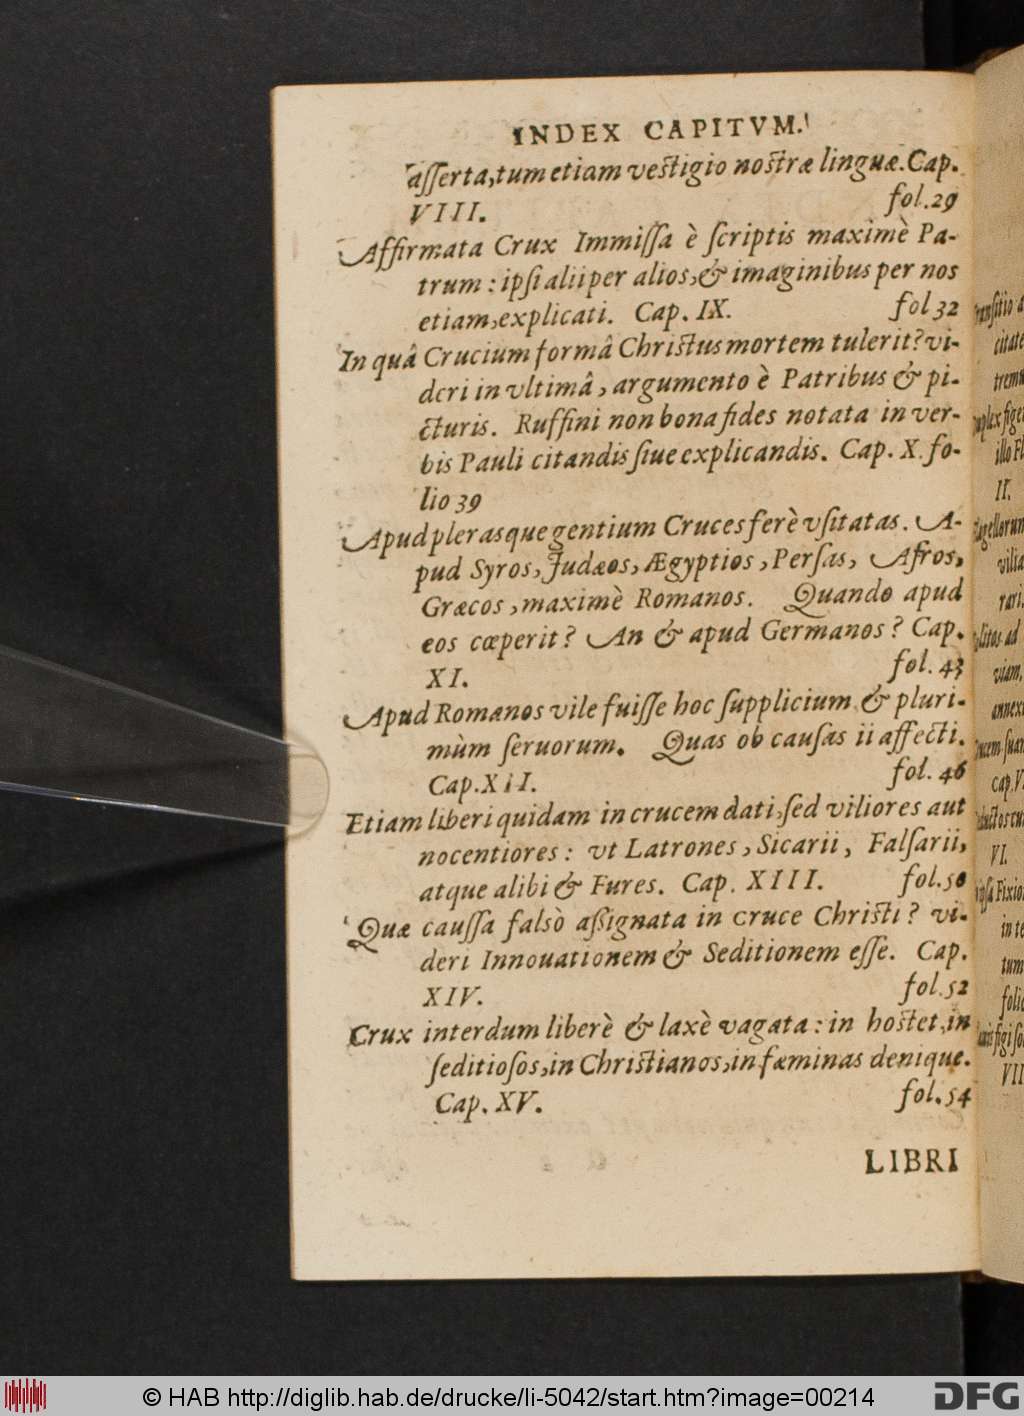 INDEX CAPITVM.
aſſerta, tum etiam veſtigio noſtræ linguæ. Cap.
VIII. fol. 29
Affirmata Crux Immiſſa è ſcriptis maximè Pa-
trum: ipſi alii per alios, & imaginibus per nos
etiam, explicati. Cap. IX. fol 32
In quâ Crucium formâ Chriſtus mortem tulerit? vi-
deri in vltimâ, argumento è Patribus & pi-
cturis. Ruffini non bona fides notata in ver-
bis Pauli citandis ſiue explicandis. Cap. X. fo-
lio 39
Apud pleraſque gentium Cruces ferè vſitatas. A-
pud Syros, Judæos, Ægyptios, Perſas, Afros,
Græcos, maximè Romanos. Quando apud
eos cœperit? An & apud Germanos? Cap.
XI. fol. 43
Apud Romanos vile fuiſſe hoc ſupplicium & pluri-
mùm ſeruorum. Quas ob cauſas ii affecti.
Cap. XII. fol. 46
Etiam liberi quidam in crucem dati, ſed viliores aut
nocentiores: vt Latrones, Sicarii, Falſarii,
atque alibi & Fures. Cap. XIII. fol. 50
Quæ cauſſa falsò aßignata in cruce Chriſti? vi-
deri Innouationem & Seditionem eſſe. Cap.
XIV. fol. 52
Crux interdum liberè & laxè vagata: in hoſtet, in
ſeditioſos, in Chriſtianos, in fæminas denique.
Cap. XV. fol. 54
LIBRI
citate
II.
rari.
viam,
cap. V
VI.
in te
tum
VII
© HAB http://diglib.hab.de/drucke/li-5042/start.htm?image=00214
DFG